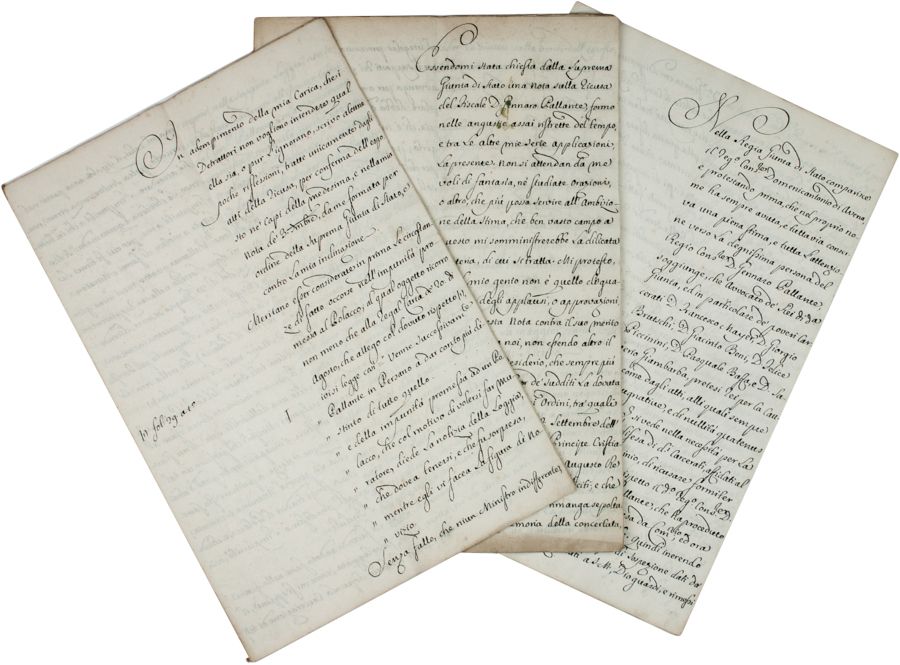 In adempimento della mia Carica, che i
Detrattori non vogliono intendere qual
ella sia, o pur l'ignorano, scrivo alcune
poche riflessioni, tratte unicamente dagli
atti della Ricusa, per conferma dell'espo
sto ne' Capi della medesima, e nella mia
Nota de' da me formata per
ordine della Suprema Giunta di Stato, e
contro la mia inclinazione.
Meritano esser considerate in prima le circostan
ze di fatto occorse nell'impunità pro
messa al Polacco, al qual oggetto ricono
non meno che alla Real Carta de'
Agosto, che allego col dovuto rispetto, in
cui si legge così " Venne successivamente
" Pallante in Persano a dar conto più di
" stinto di tutto quello
" e della impunità promessa ad un Po
" lacco, che col motivo di volersi far Mu
" ratore, diede la notizia della Loggia,
" che dovea tenersi, e che fu sorpresa
" mentre egli vi facea la figura di No
" vizio.
Senza fallo, che niun Ministro indifferente
10 fol. 29 a to
I
Essendomi stata chiesta dalla Suprema
Giunta di Stato una Nota sulla Ricusa
del Fiscale D. Gennaro Pallante, formo
nelle angustie assai ristrette del tempo,
e tra le altre mie serie applicazioni,
la presente. Non si attendan da me
voli di fantasia, nè studiate orazioni,
o altro, che più possa servire all'Ambizio
ne della Stima, che ben vasto campo a
questo mi somministrerebbe la dilicata
teria, di cui si tratta. Mi protesto,
mio genio non è quello di
degli applausi, o approvazioni,
sta Nota contro il suo merito
noi, non essendo altro il
siderio, che sempre più
de' sudditi la dovuta
Ordini, tra' quale
Settembre dell'
Principe Cristia
Augusto Re
citi; e che
rimanga sepolta
moria della concertata
Nella Regia Giunta di Stato comparisce
il Rego Consre Domenicantonio di Avena
e protestando prima, che nel proprio no
me ha sempre avuta, e tuttavia conser
va una piena stima, e tutta l'attenzio
ne verso la degnissima persona del
Regio Consre D. Gennaro Pallante
Soggiunge, che Avvocato de' Rei di da
Giunta, ed in particolare de' poveri Car
cerati D. Francesco D. Giorgio
D. Giacinto Bovi, D. Felice
Piccinini, D. Pasquale Baffi, e D.
Giambarba, pretesi rei per la Causa
come dagli atti, alli quali sempre
e di nullità quatenus
si vede nella necessità per la
difesa di di Carcerati, affidati al
minio, di ricusare
spetto il do Rego Consre D.
Pallante, che ha proceduto
sa da Comro, ed ora
quindi inerendo
di Sospezione dati da
a S. M., Dio guardi, e rimessi